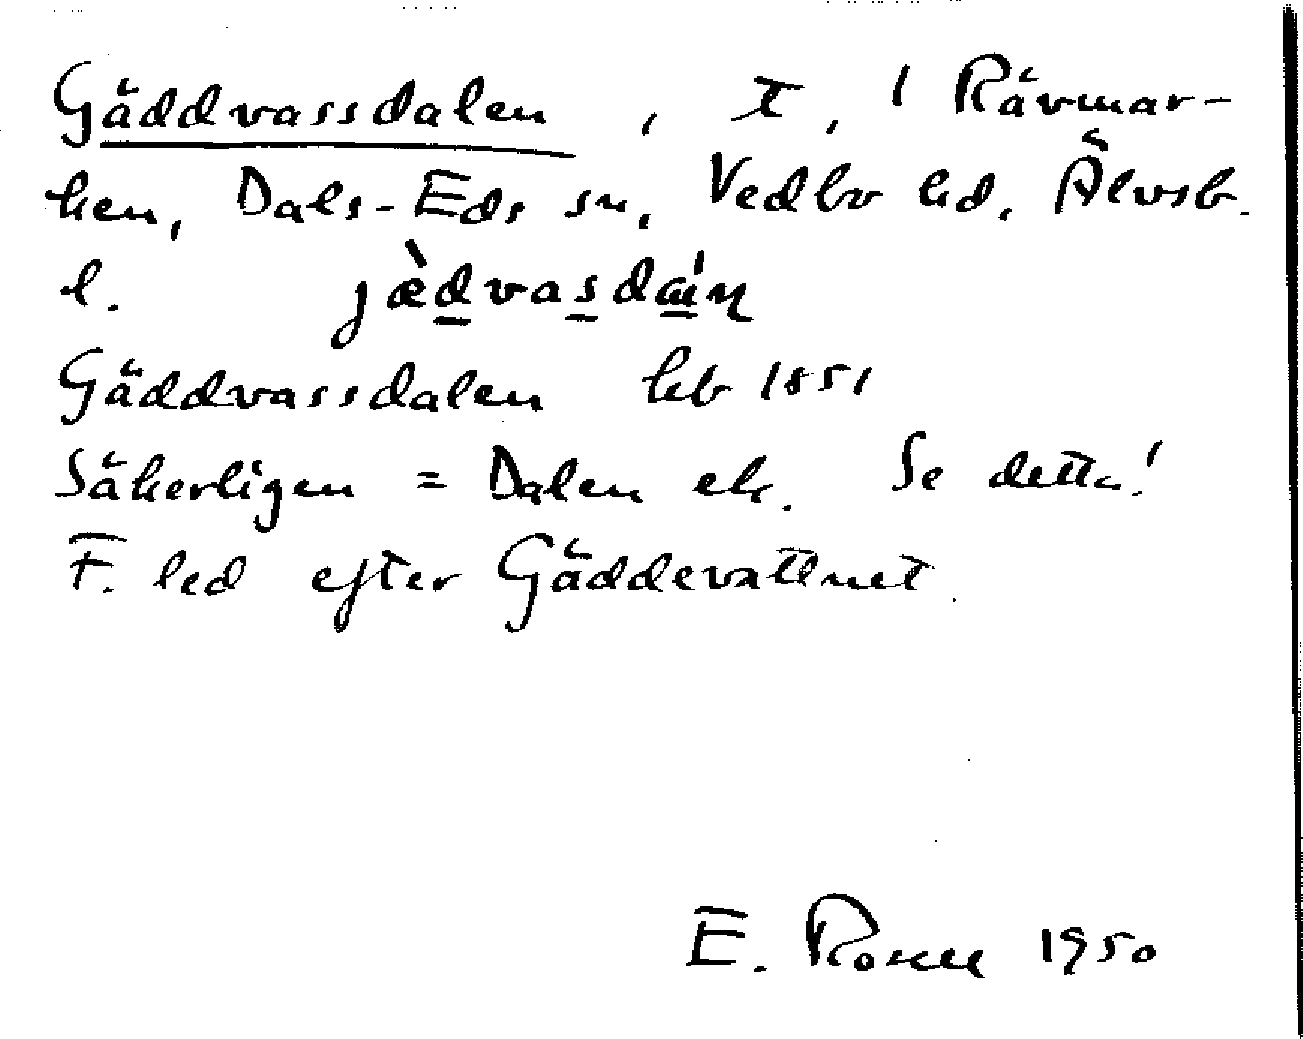 Gäddvassdalen, t, i Rävmar-
ken, Dals-Eds sn, Vedbo hd, Älvsb.
l. jæ̀dvasda̍n
Gäddvassdalen hfb 1851
Säkerligen = Dalen ek. Se detta!
F. led efter Gäddevattnet
E. 1950